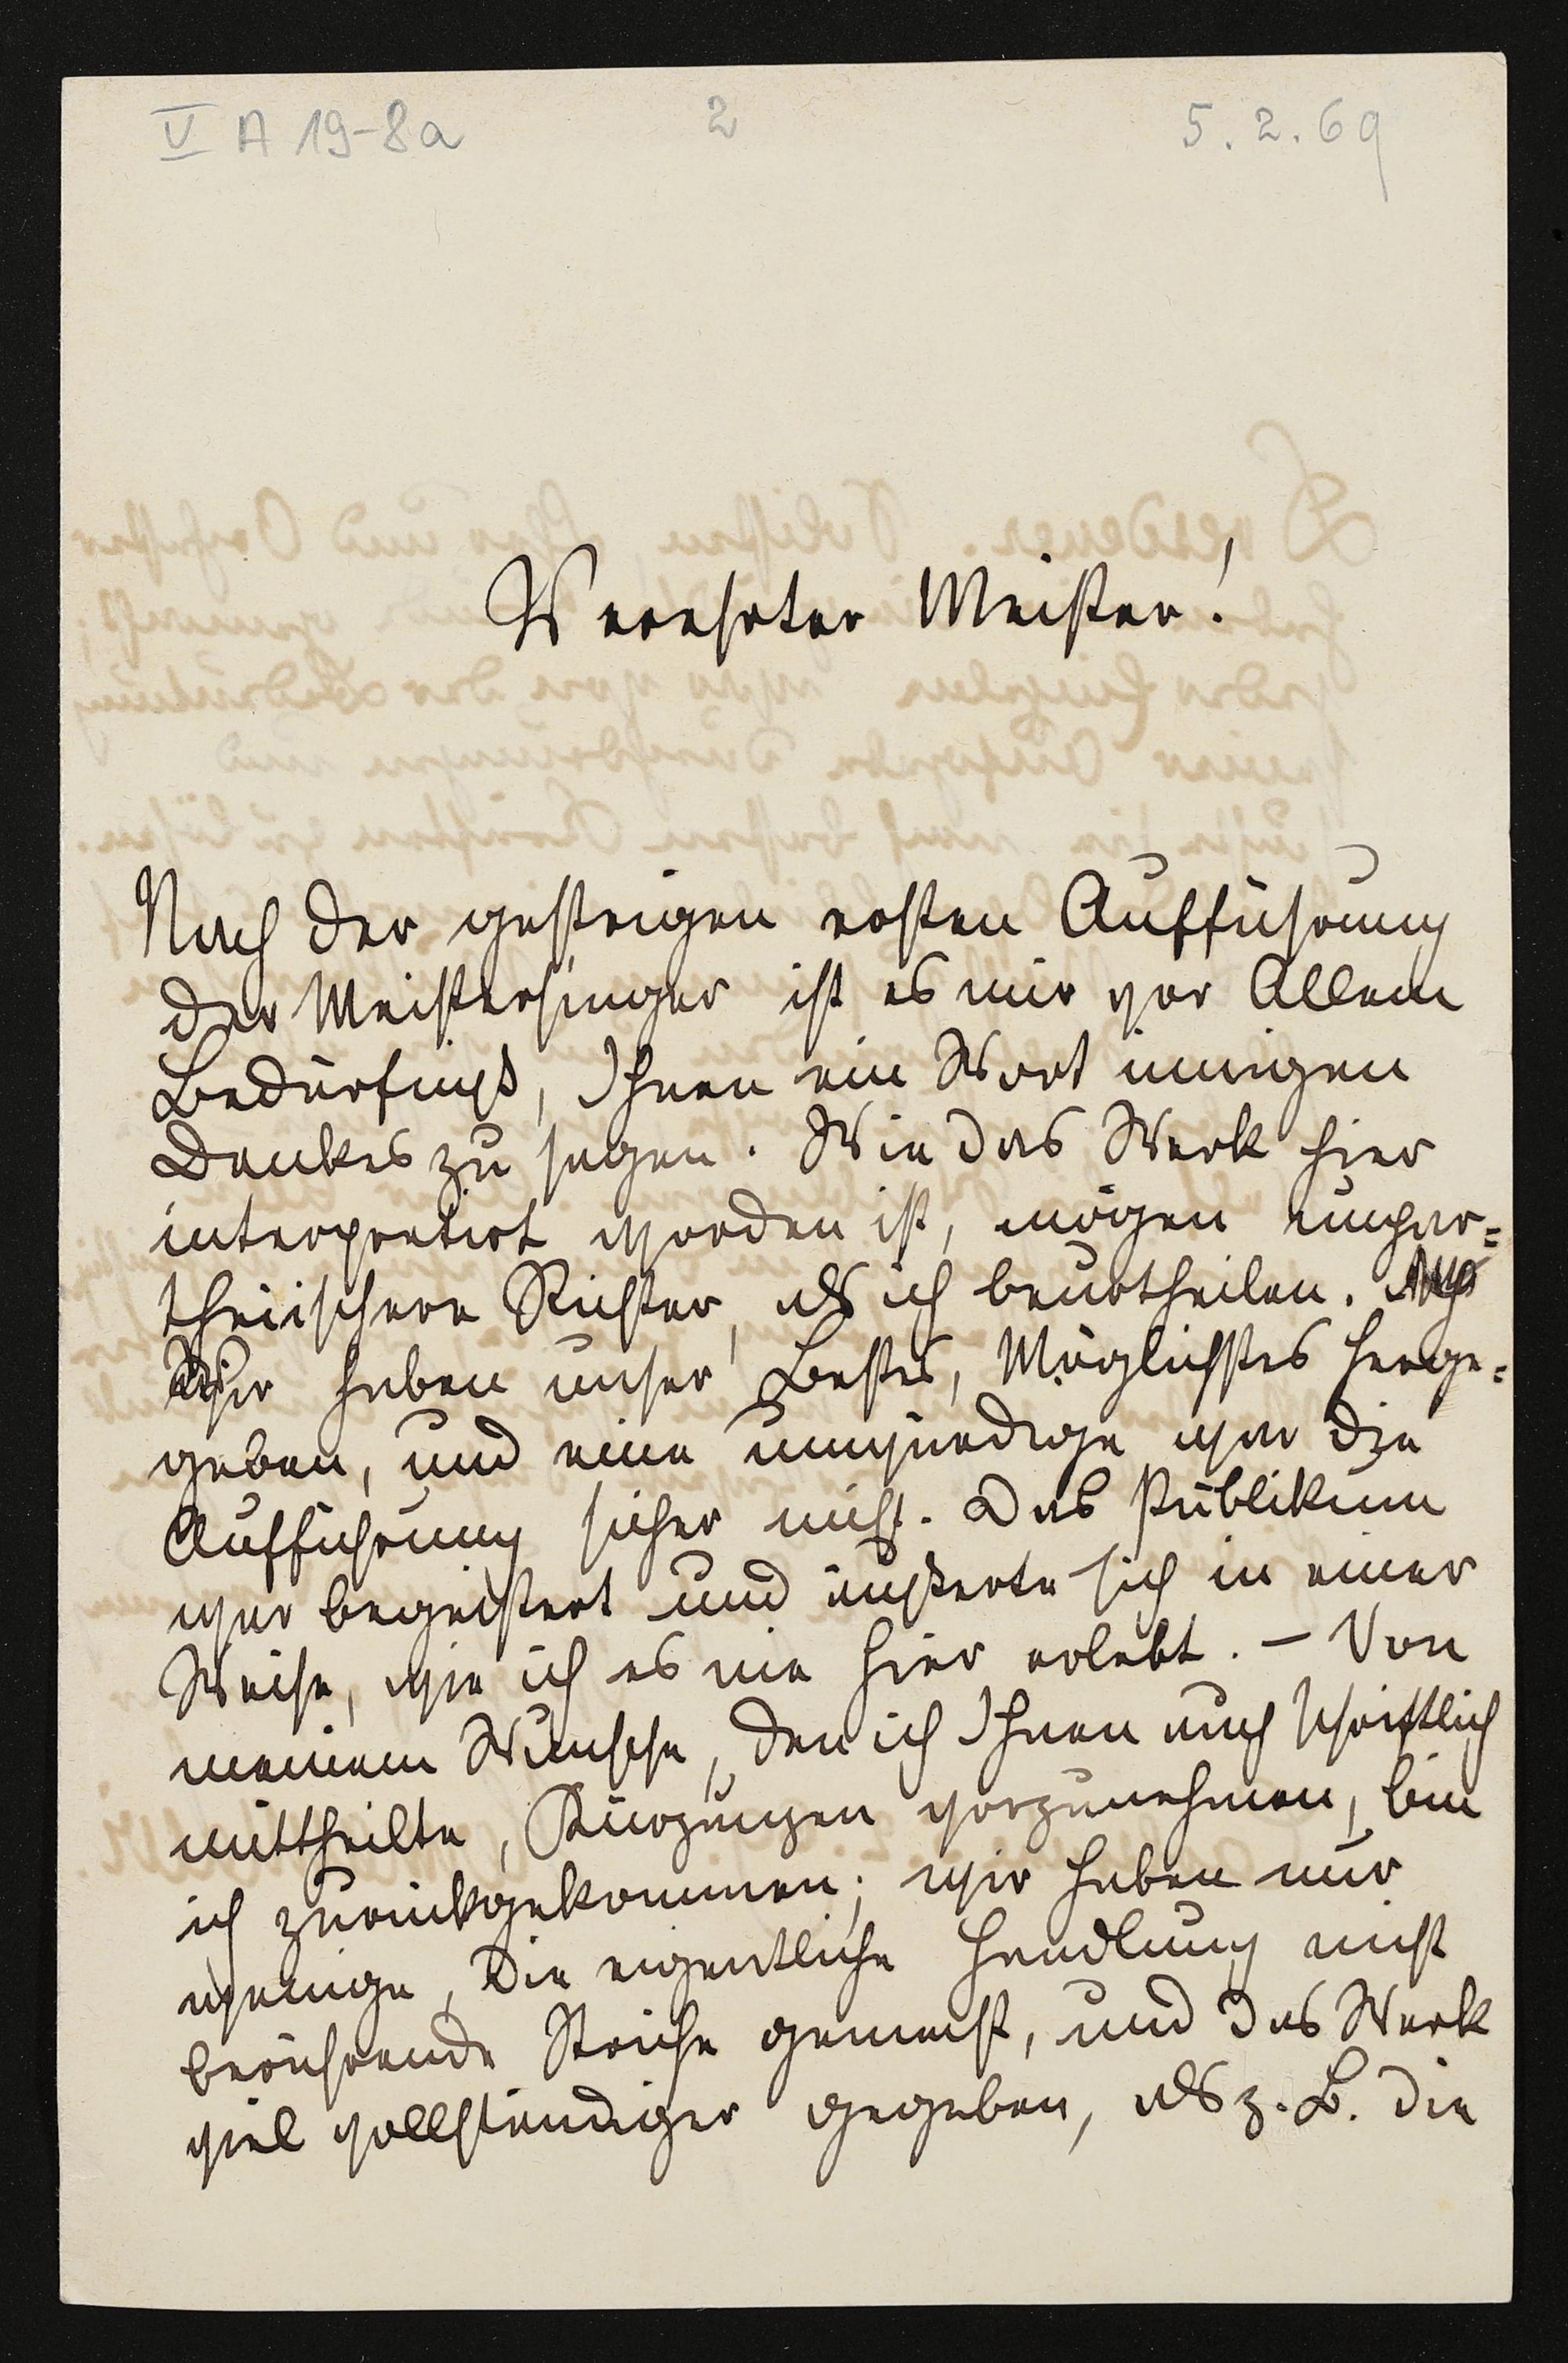 V A 19-8a 2 5.2.69
Verehrter Meister!
Nach der gestrigen ersten Aufführung
der Meistersinger ist es mir vor Allem
Bedürfniß, Ihnen ein Wort innigen
Dankes zu sagen. Wie das Werk hier
interpretirt worden ist, mögen unpar=
theiischere Richter, als ich beurtheilen.
Wir haben unser Bestes, Möglichstes herge=
geben, und eine unwürdige war die
Aufführung sicher nicht. Das Publikum
war begeistert und äußerte sich in einer
Weise, wie ich es nie hier erlebt. – Von
meinem Wunsche, den ich Ihnen auch schriftlich
mittheilte, Kürzungen vorzunehmen, bin
ich zurückgekommen; wir haben nur
wenige, die eigentliche Handlung nicht
berührende Striche gemacht, und das Werk
viel vollständiger gegeben, als z. B. die